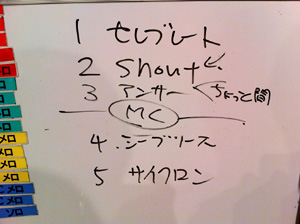 1 セレブレート
2 Shout
3 アンサー ちょっと間
MC
4.シーブリーズ
5 サイクロン
メロ
メロ
メロ
メロ
メロ
Cメロ
Cメロ
ソロ